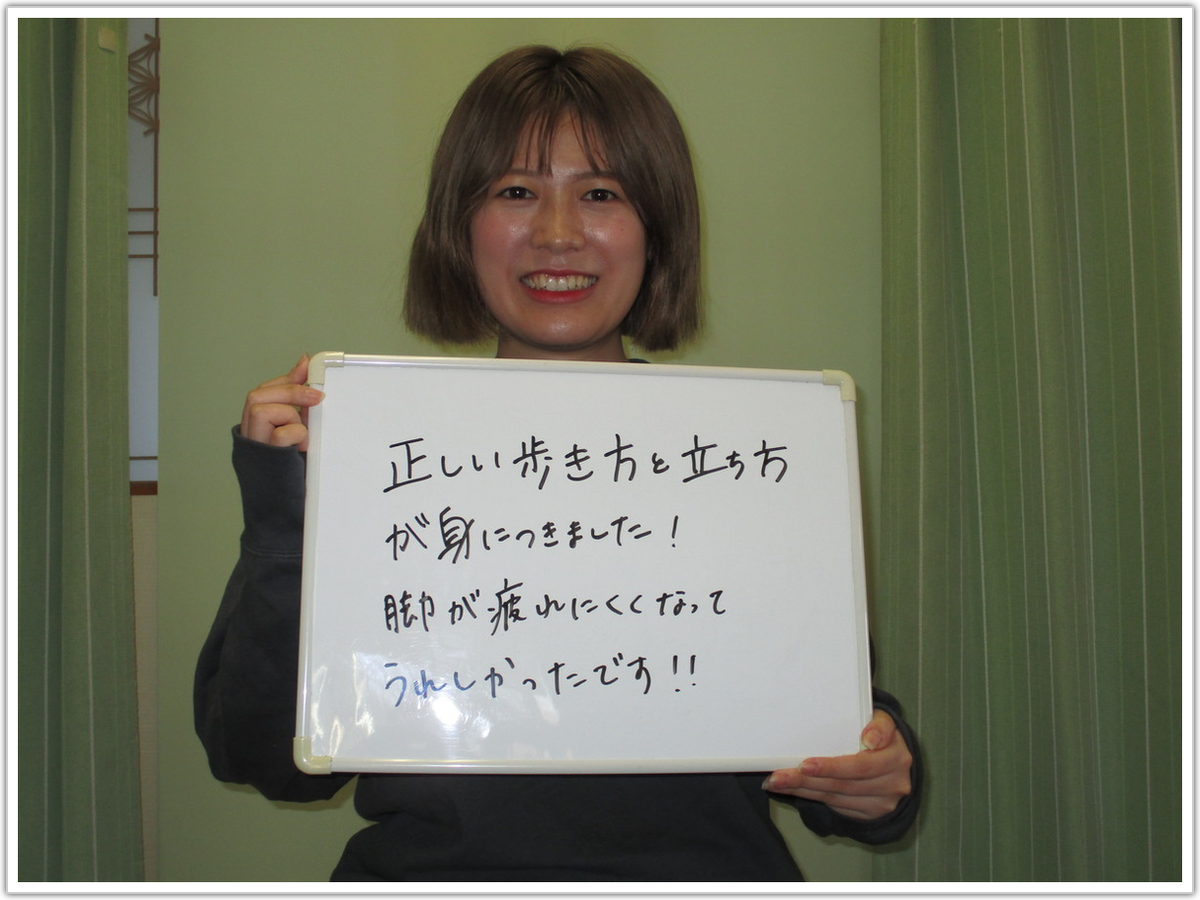 正しい歩き方と立ち方
が身につきました！
脚が疲れにくくなって
うれしかったです！！